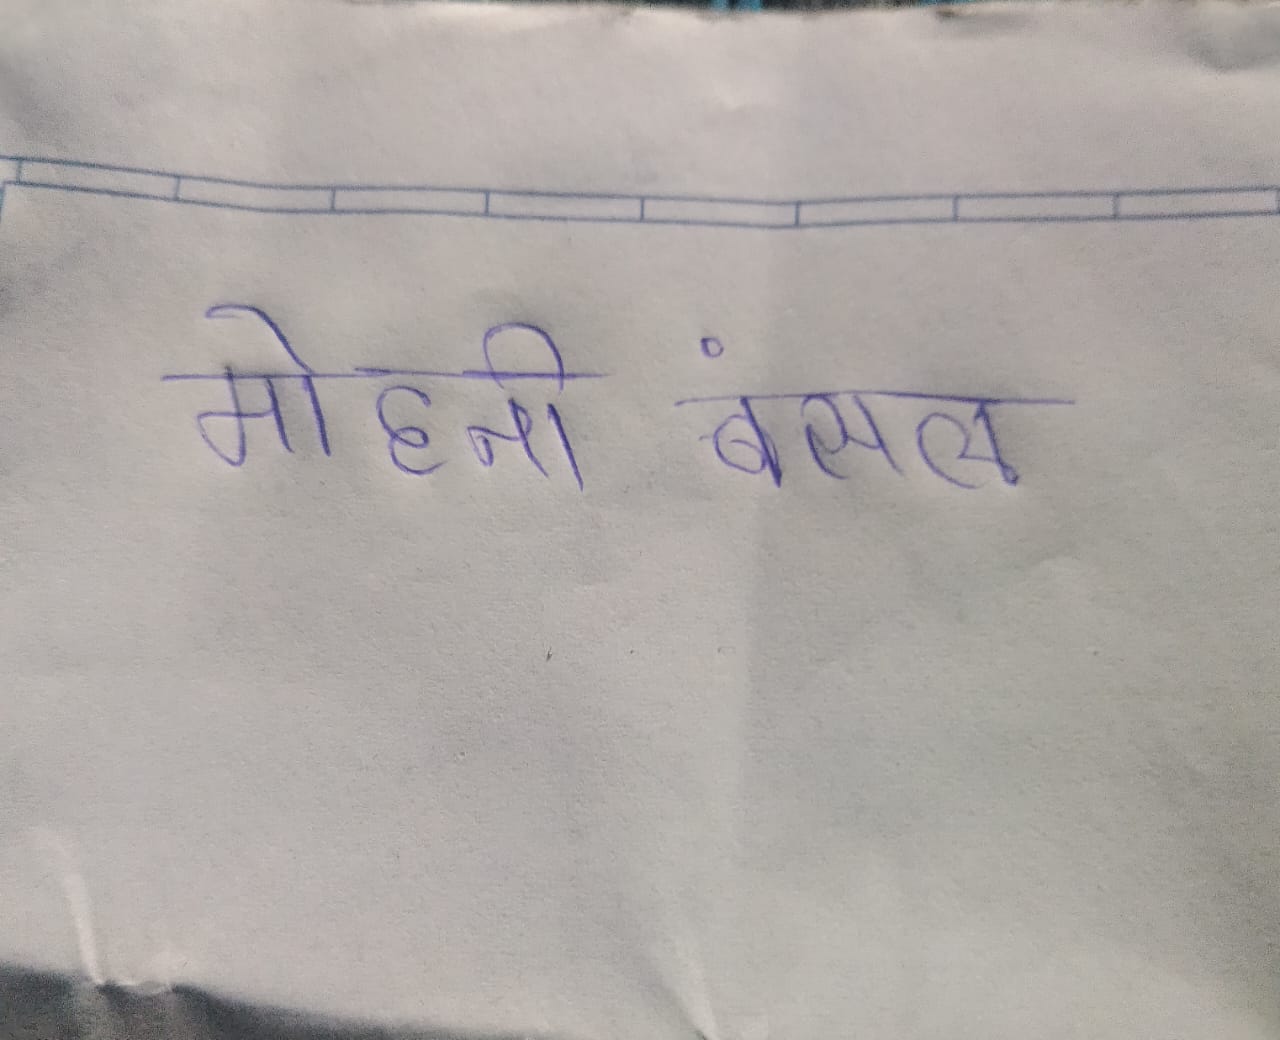 मोहनी बंसल